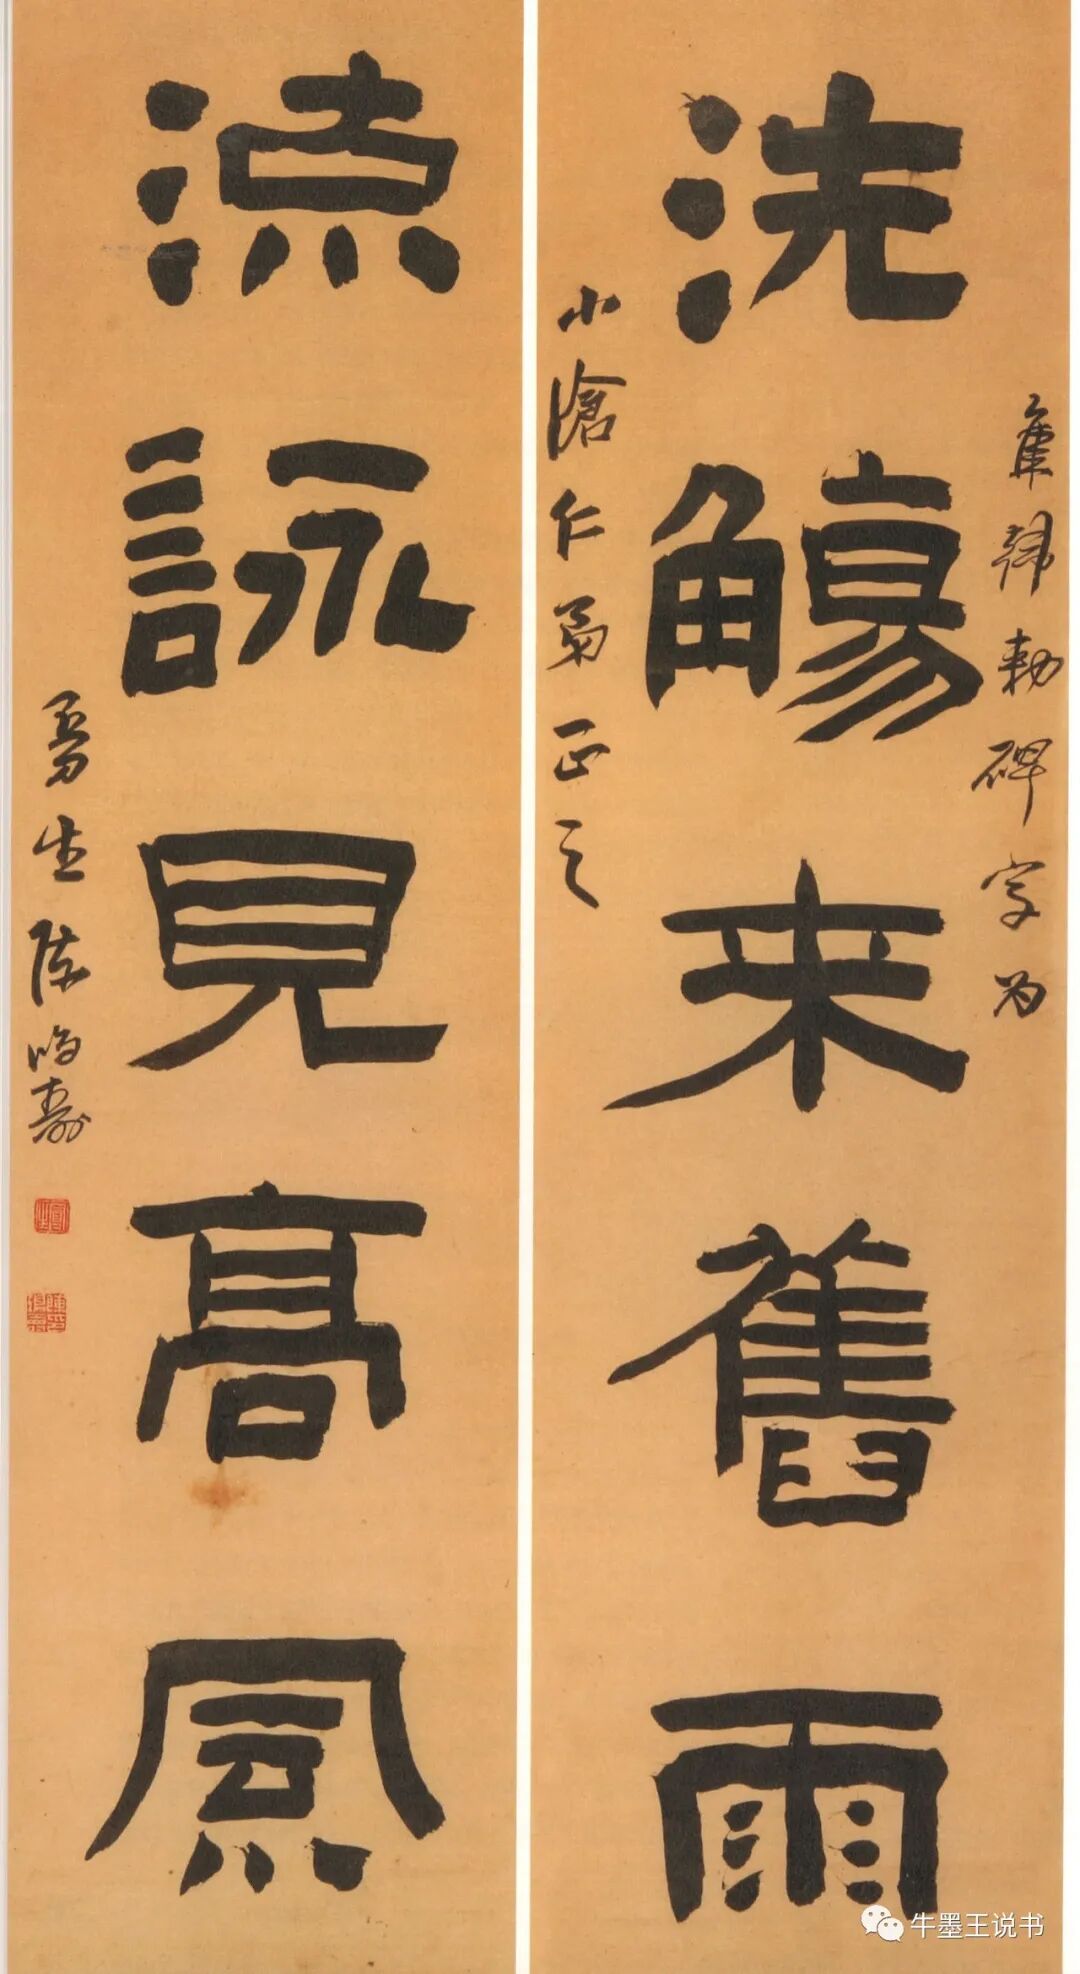 集韓勅碑字为
洗觴来舊雨
小滄仁弟正之
流詠見髙風
曼生陳鴻壽
牛墨王说书